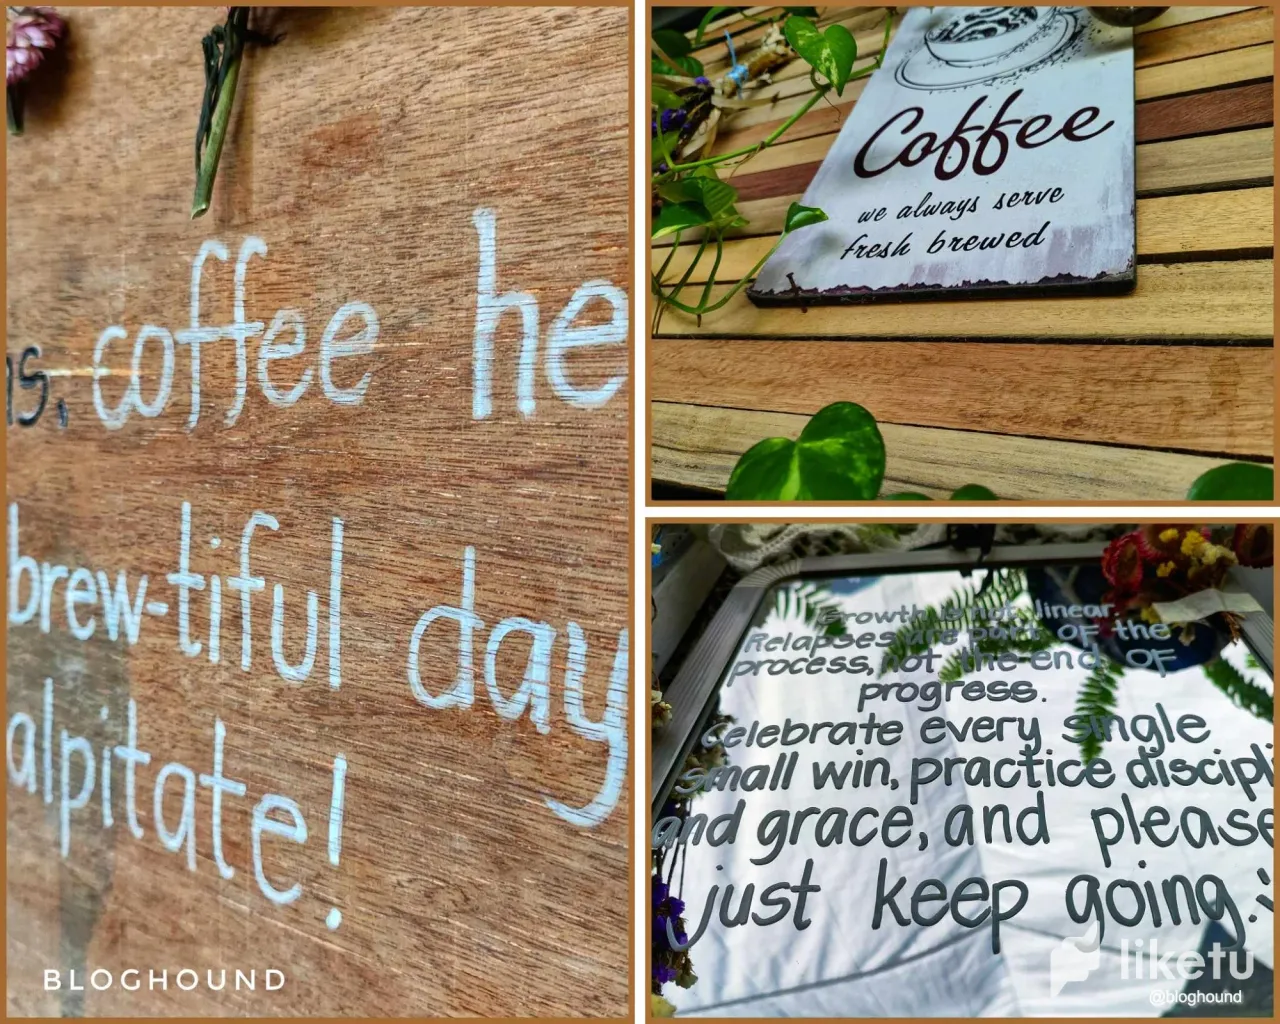 as, coffee he
brew-tiful day
alpitate!
BLOGHOUND
Coffee
we always serve
fresh brewed
Growth is not linear.
Relapses are part OF the
process, not the end OF
progress.
Celebrate every single
small win, practice discipli
and grace, and please
just keep going.:
liketu
@bloghound